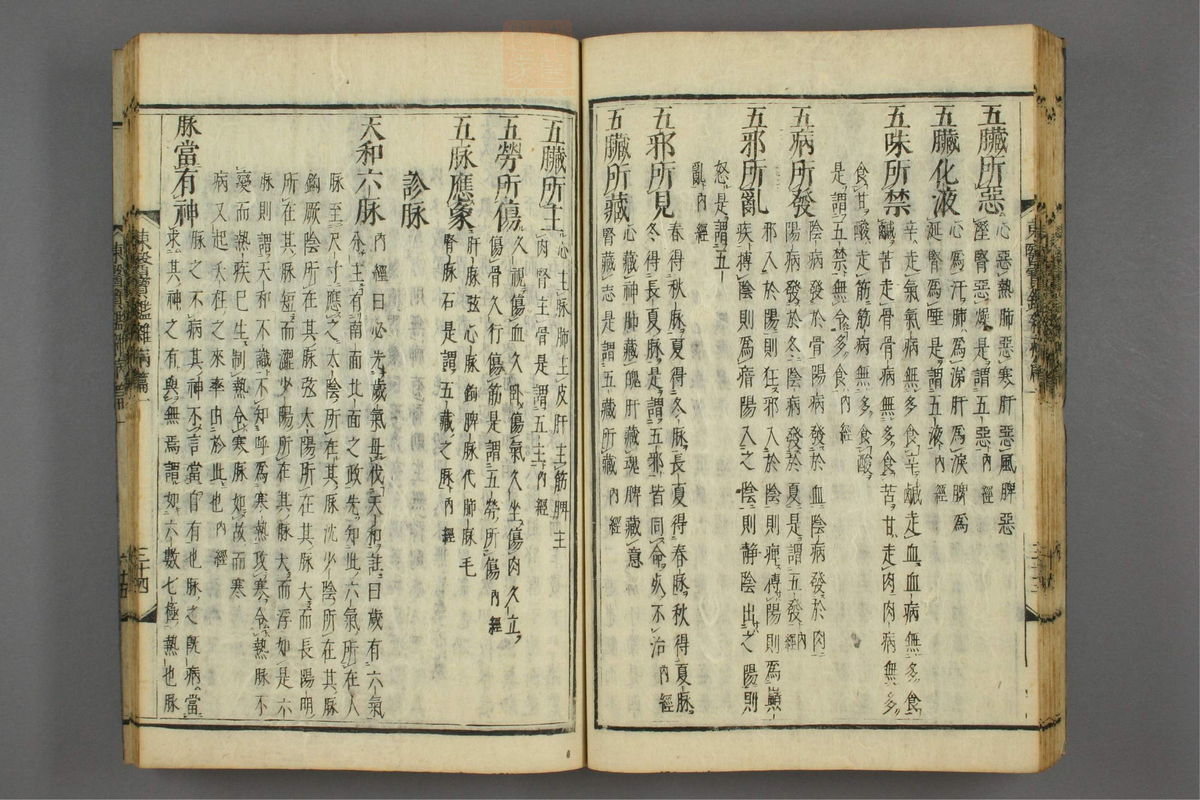 五臟所惡
心惡熱肺惡寒肝惡風脾惡
溼腎惡燥是謂五惡內經
五臟化液
心爲汗肺爲涕肝爲淚脾爲
涎腎爲唾是謂五液內經
五味所禁
辛走氣氣病無多食辛鹹走血血病無多食
鹹苦走骨骨病無多食苦甘走肉肉病無多
食甘酸走筋筋病無多食酸
是謂五禁無令多食內經
五病所發
陰病發於骨陽病發於血陰病發於肉
陽病發於冬陰病發於夏是謂五發內經
五邪所亂
邪入於陽則狂邪入於陰則痺搏陽則爲巓
疾搏陰則爲瘖陽入之陰則静陰出之陽則
怒是謂五
亂內經
五邪所見
春得秋脉夏得冬脉長夏得春脉秋得夏脉
冬得長夏脉是謂五邪皆同命死不治內經
五臟所藏
心藏神肺藏魄肝藏魂脾藏意
腎藏志是謂五藏所藏內經
五臟所主
心主脉肺主皮肝主筋脾主
肉腎主骨是謂五主內經
五勞所傷
久視傷血久臥傷氣久坐傷肉久立
傷骨久行傷筋是謂五勞所傷內經
五脉應象
肝脉弦心脉鉤脾脉代肺脉毛
腎脉石是謂五藏之脉內經
診脉
天和六脉
內經曰必先歲氣毋伐天和註曰歲有六氣
分主有南面北面之政先知此六氣所在人
脉至尺寸應之太陰所在其脉沈少陰所在其脉
鉤厥陰所在其脉弦太陽所在其脉大而長陽明
所在其脉短而澀少陽所在其脉大而浮如是六
脉則謂天和不識不知呼爲寒熱攻寒令熱脉不
變而熱疾已生制熱令寒脉如故而寒
病又起夭枉之來率由於此也內經
脉當有神
脉之不病其神不言當自有也脉之既病當
求其神之有與無焉謂如六數七極熱也脉
東醫寶鑑雜病篇一
三十四